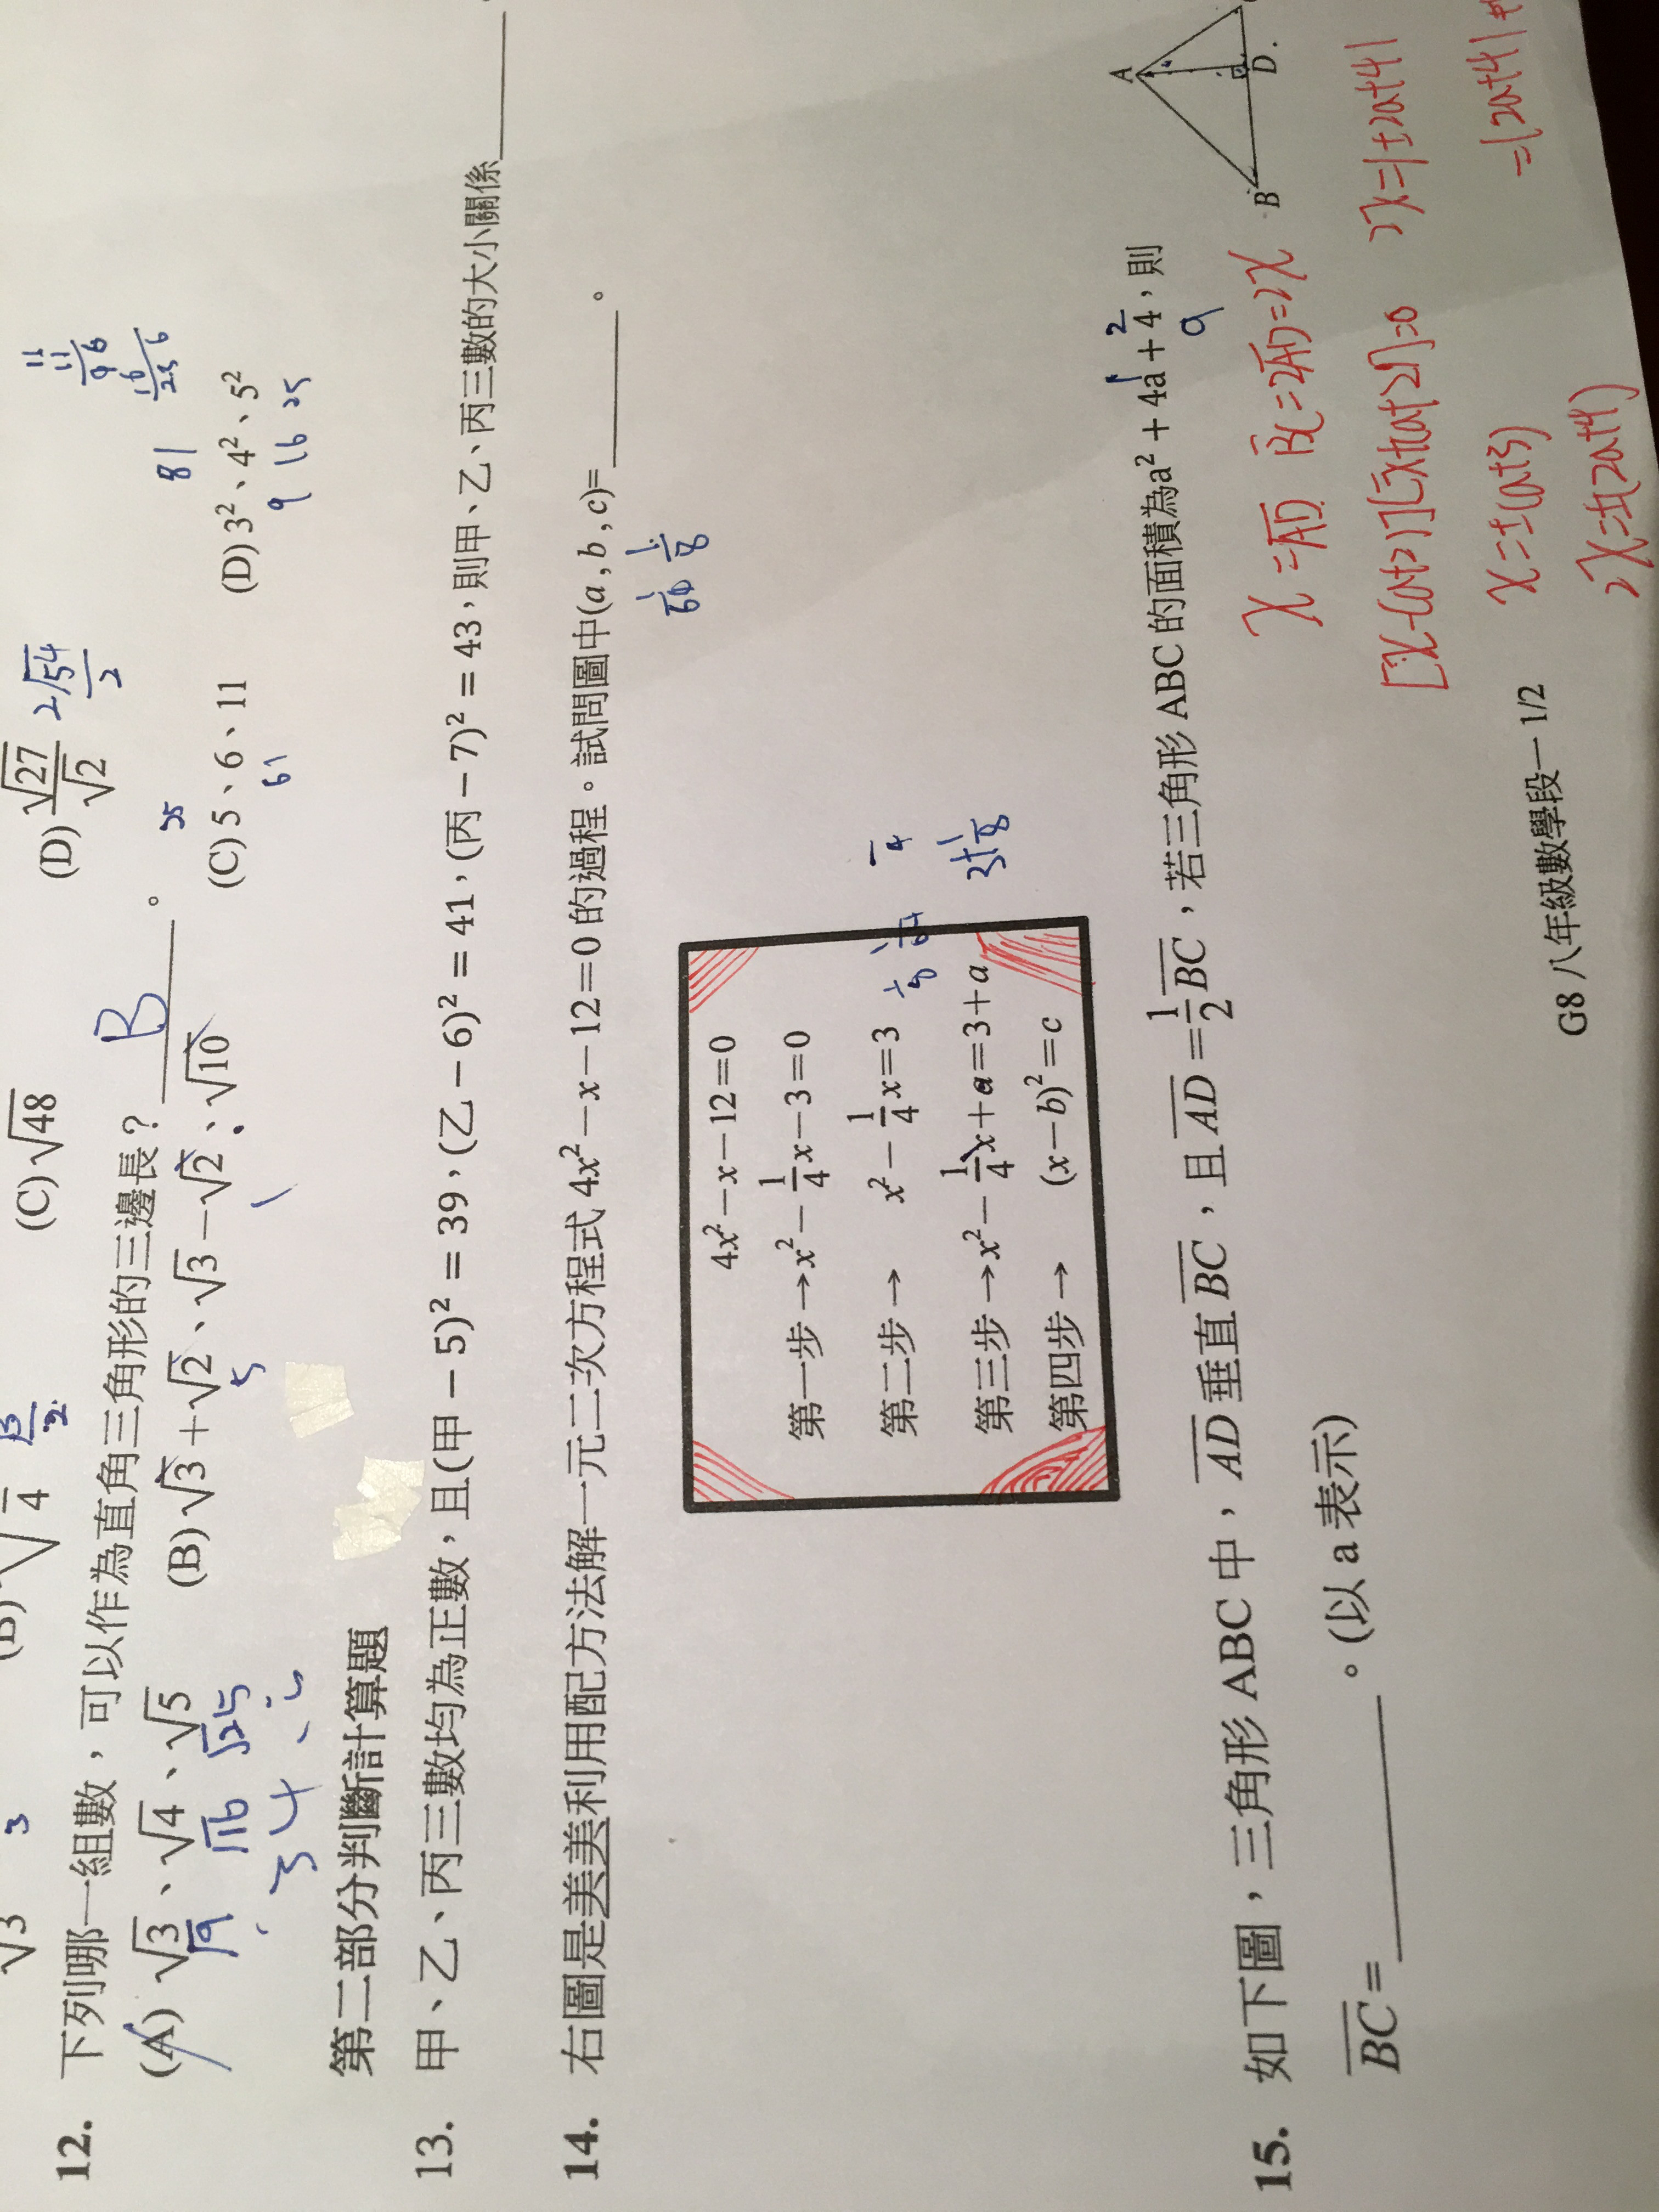 √3
3
(B)
√4
(C)√48
(D) √27/√2 2√54/2
12. 下列哪一組數，可以作為直角三角形的三邊長？ B 。
(A) √3、√4、√5
√9 √16 √25
3 4
(B) √3+√2、√3−√2、√10
5 1
(C) 5、6、11
25
61
(D) 3²、4²、5²
81
9 16 25
第二部分判斷計算題
13. 甲、乙、丙三數均為正數，且(甲 − 5)² = 39，(乙 − 6)² = 41，(丙 − 7)² = 43，則甲、乙、丙三數的大小關係
14. 右圖是美美利用配方法解一元二次方程式 4x²−x−12=0 的過程。試問圖中(a , b , c)= 。
1/64 1/8
4x²−x−12=0
第一步 →x²−1/4x−3=0
第二步 → x²−1/4x=3
1/8 1/64 1/4
第三步 →x²−1/4x+a=3+a
第四步 → (x−b)²=c
15. 如下圖，三角形 ABC 中，AD 垂直 BC，且 AD=1/2BC，若三角形 ABC 的面積為a² + 4a + 4，則
1 2
BC= 。(以 a 表示)
A
B
D.
x=AD BC=2AD=2x
[x-(a+2)][x+(a+2)]=0 2x=|±2a+4|
2x=±(2a+4) =|2a+4|
G8 八年級數學段一 1/2